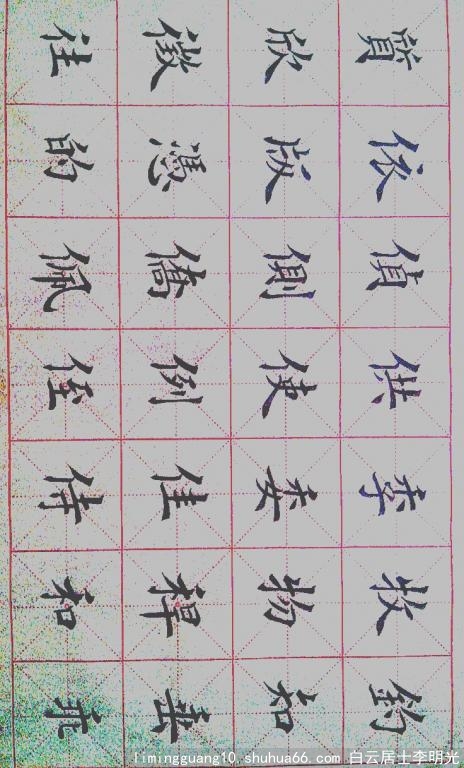 質依偵供季牧釣
欣版側使委物知
徵憑僑例佳垂
往的佩侄侍和乖
limingguang10.shuhua66.com 白云居士李明光